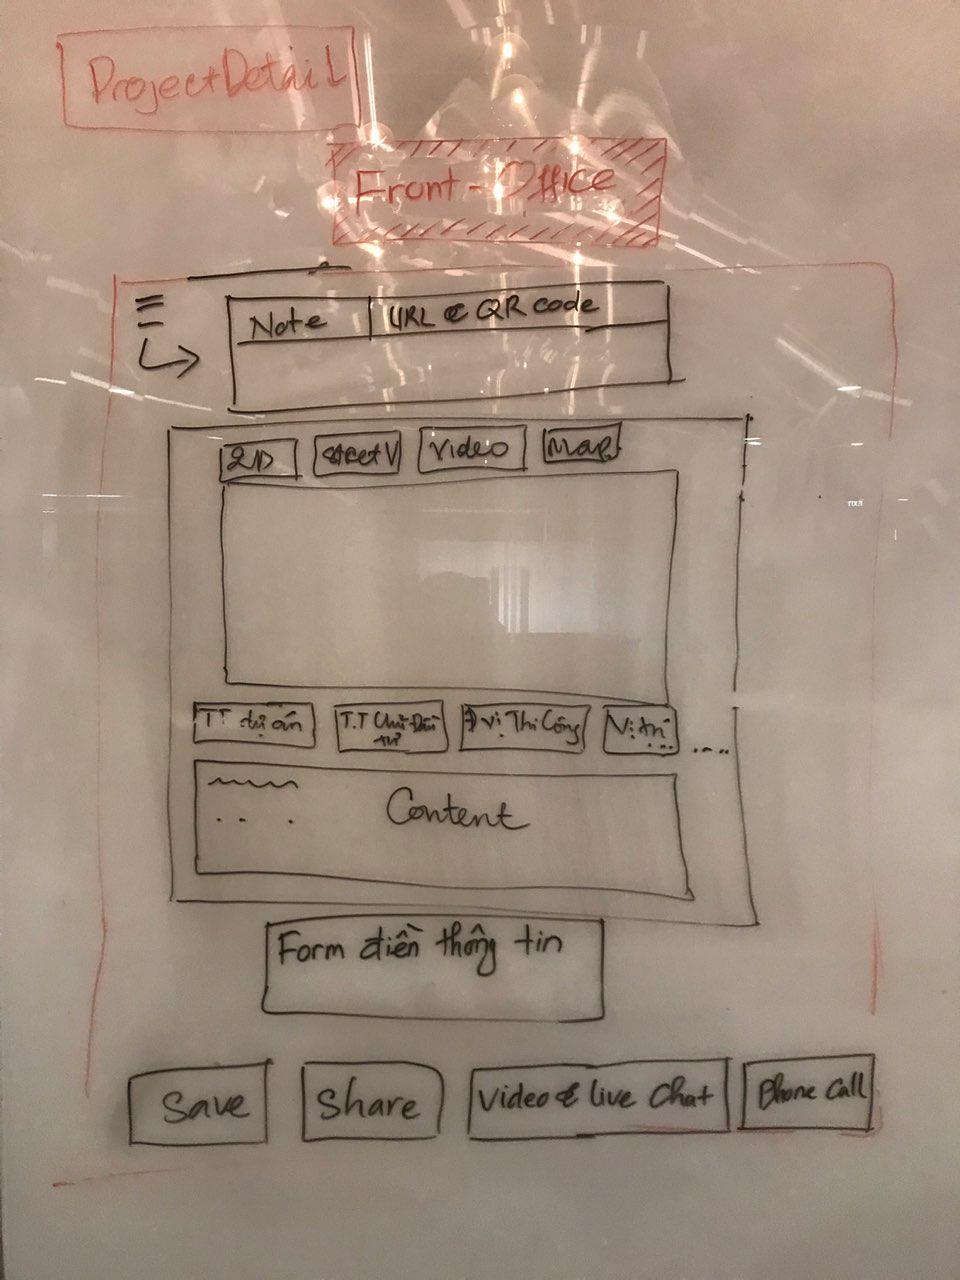 ProjectDetail
Front-Office
Note URL & QR code
2D StreetV Video Map
TT dự án T.T Chủ Đầu tư Đ vị Thi Công Vị trí ... ....
Content
Form điền thông tin
Save Share Video & live Chat Phone Call